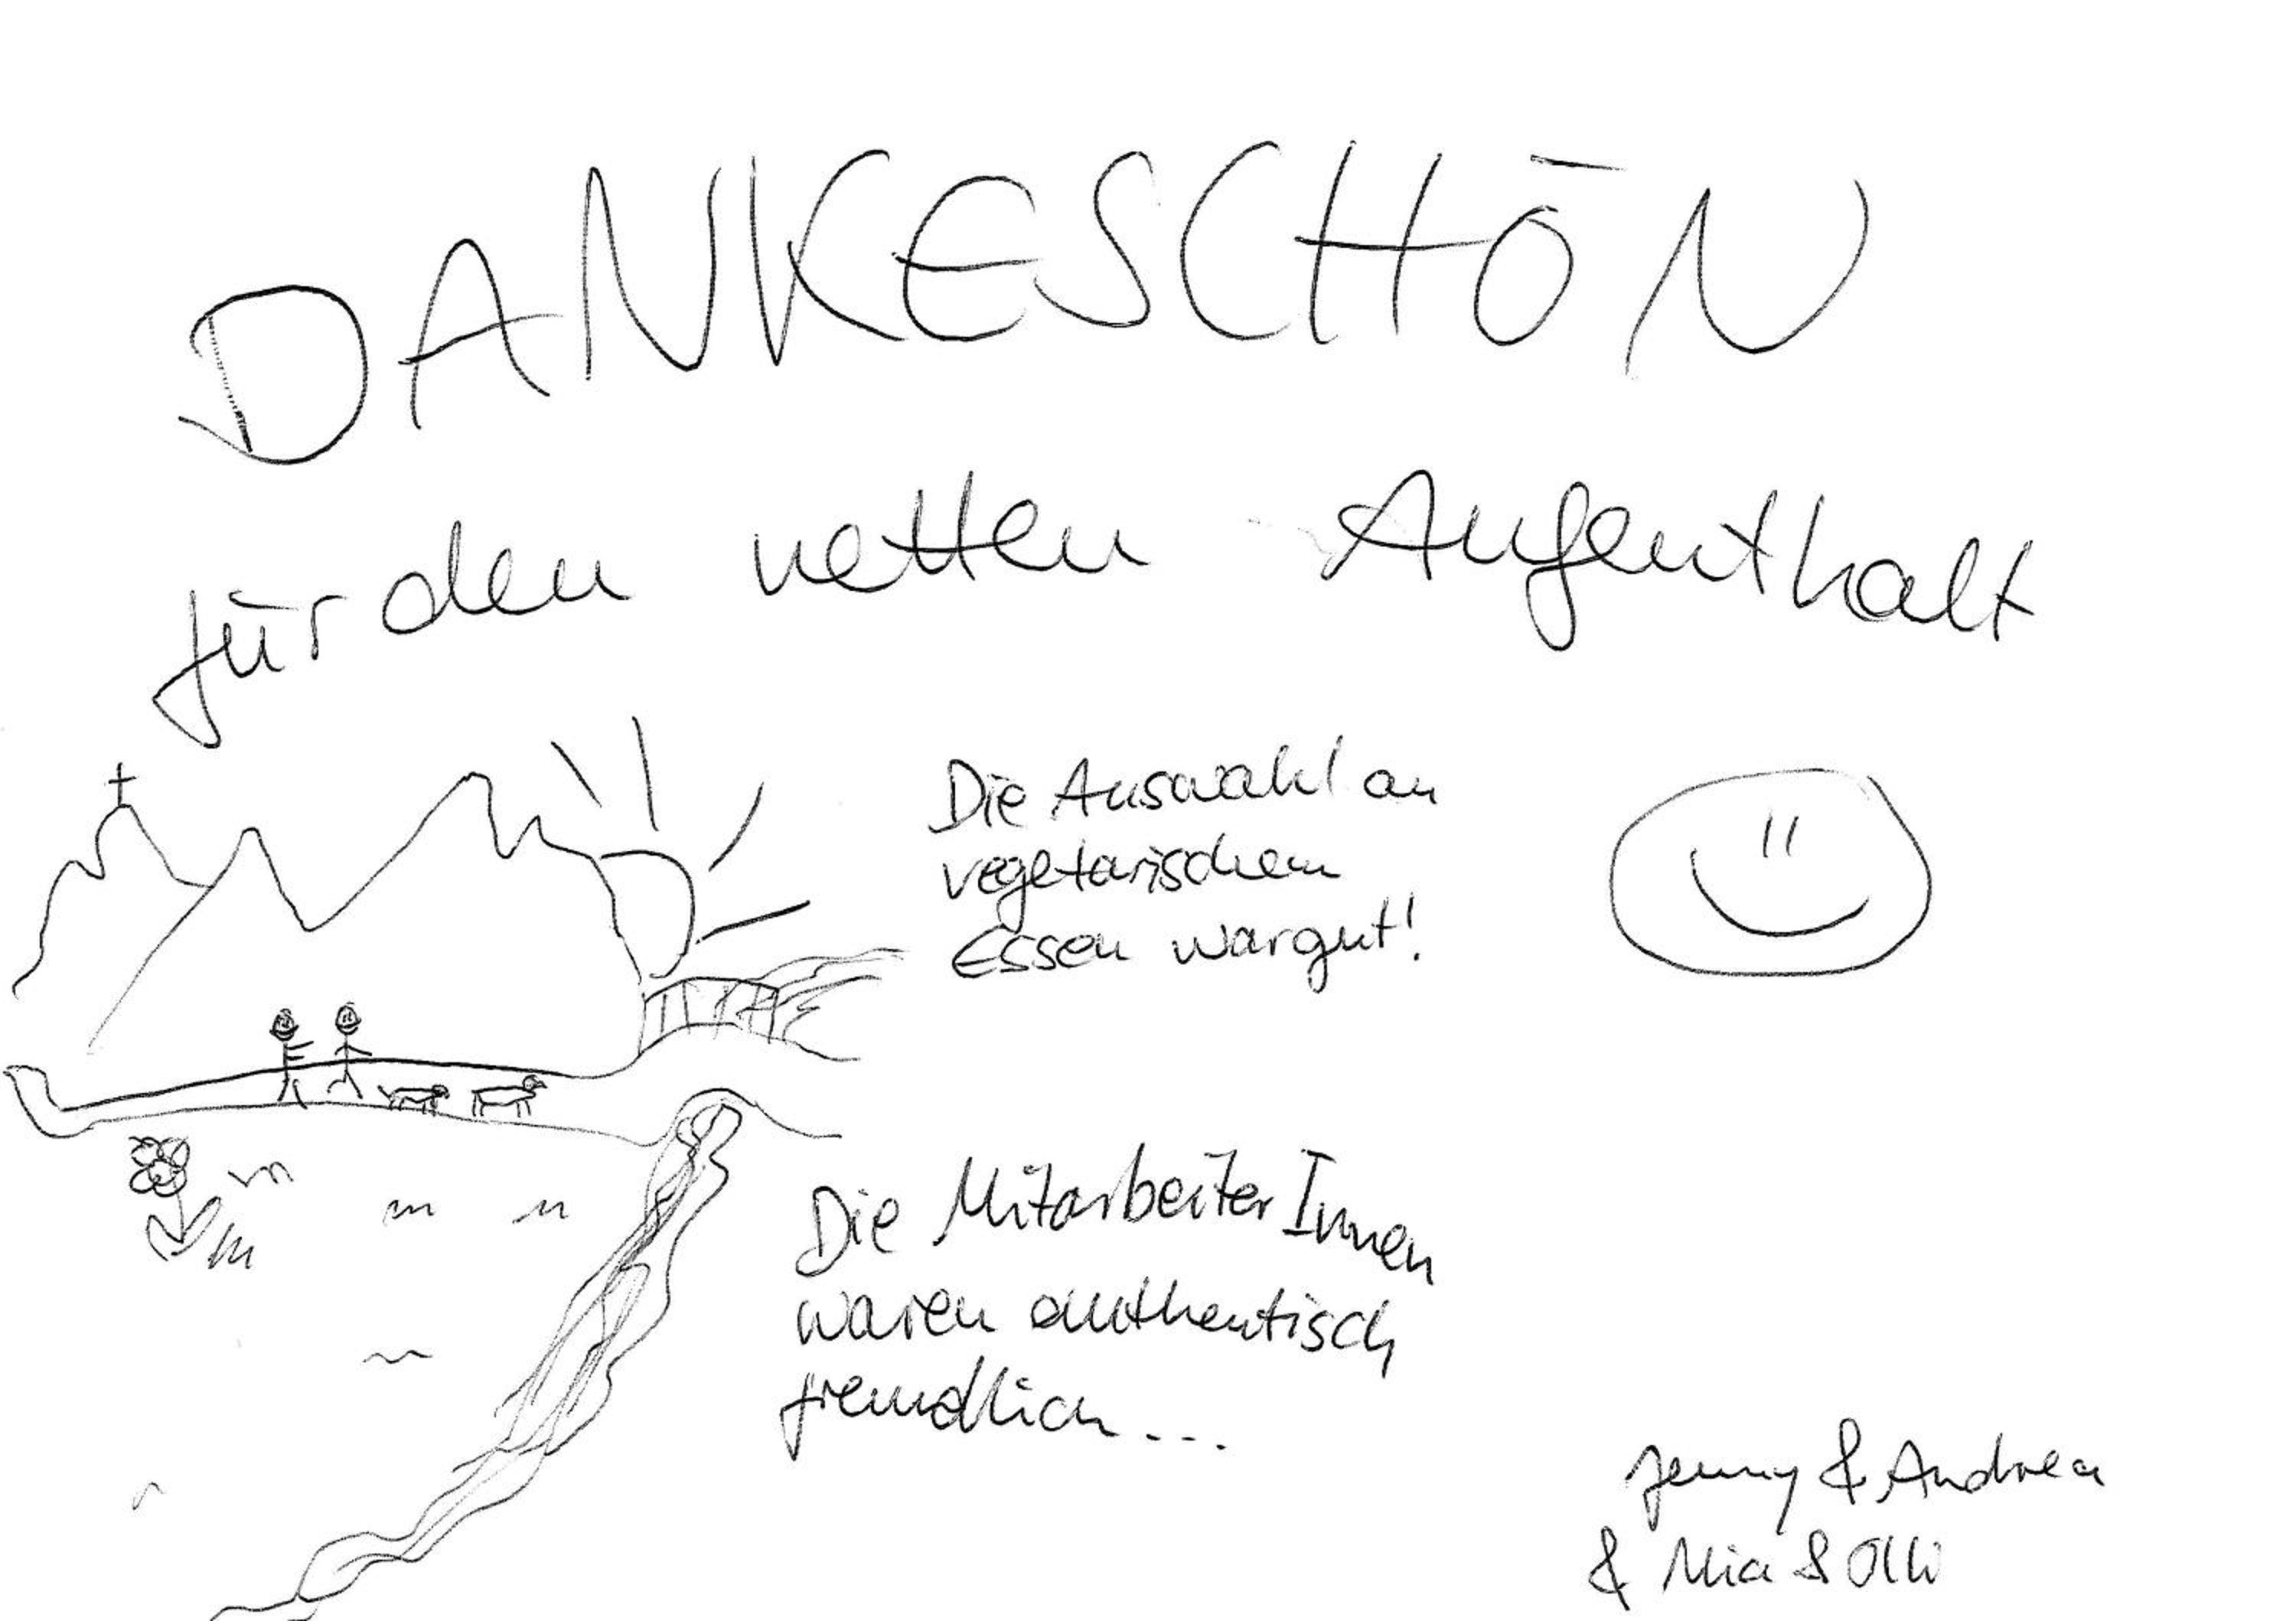 DANKESCHÖN
für den netten Aufenthalt
Die Auswahl an
vegetarischem
Essen war gut!
Die MitarbeiterInnen
waren authentisch
freundlich...
Jenny & Andrea
& Mia & Olli